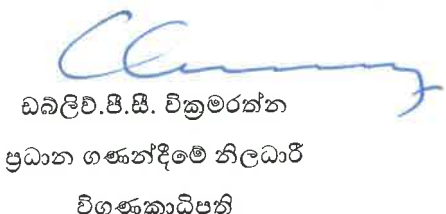 ඩබ්ලිව්.පී.සී. වික්‍රමරත්න
ප්‍රධාන ගණන්දීමේ නිලධාරී
විගණකාධිපති